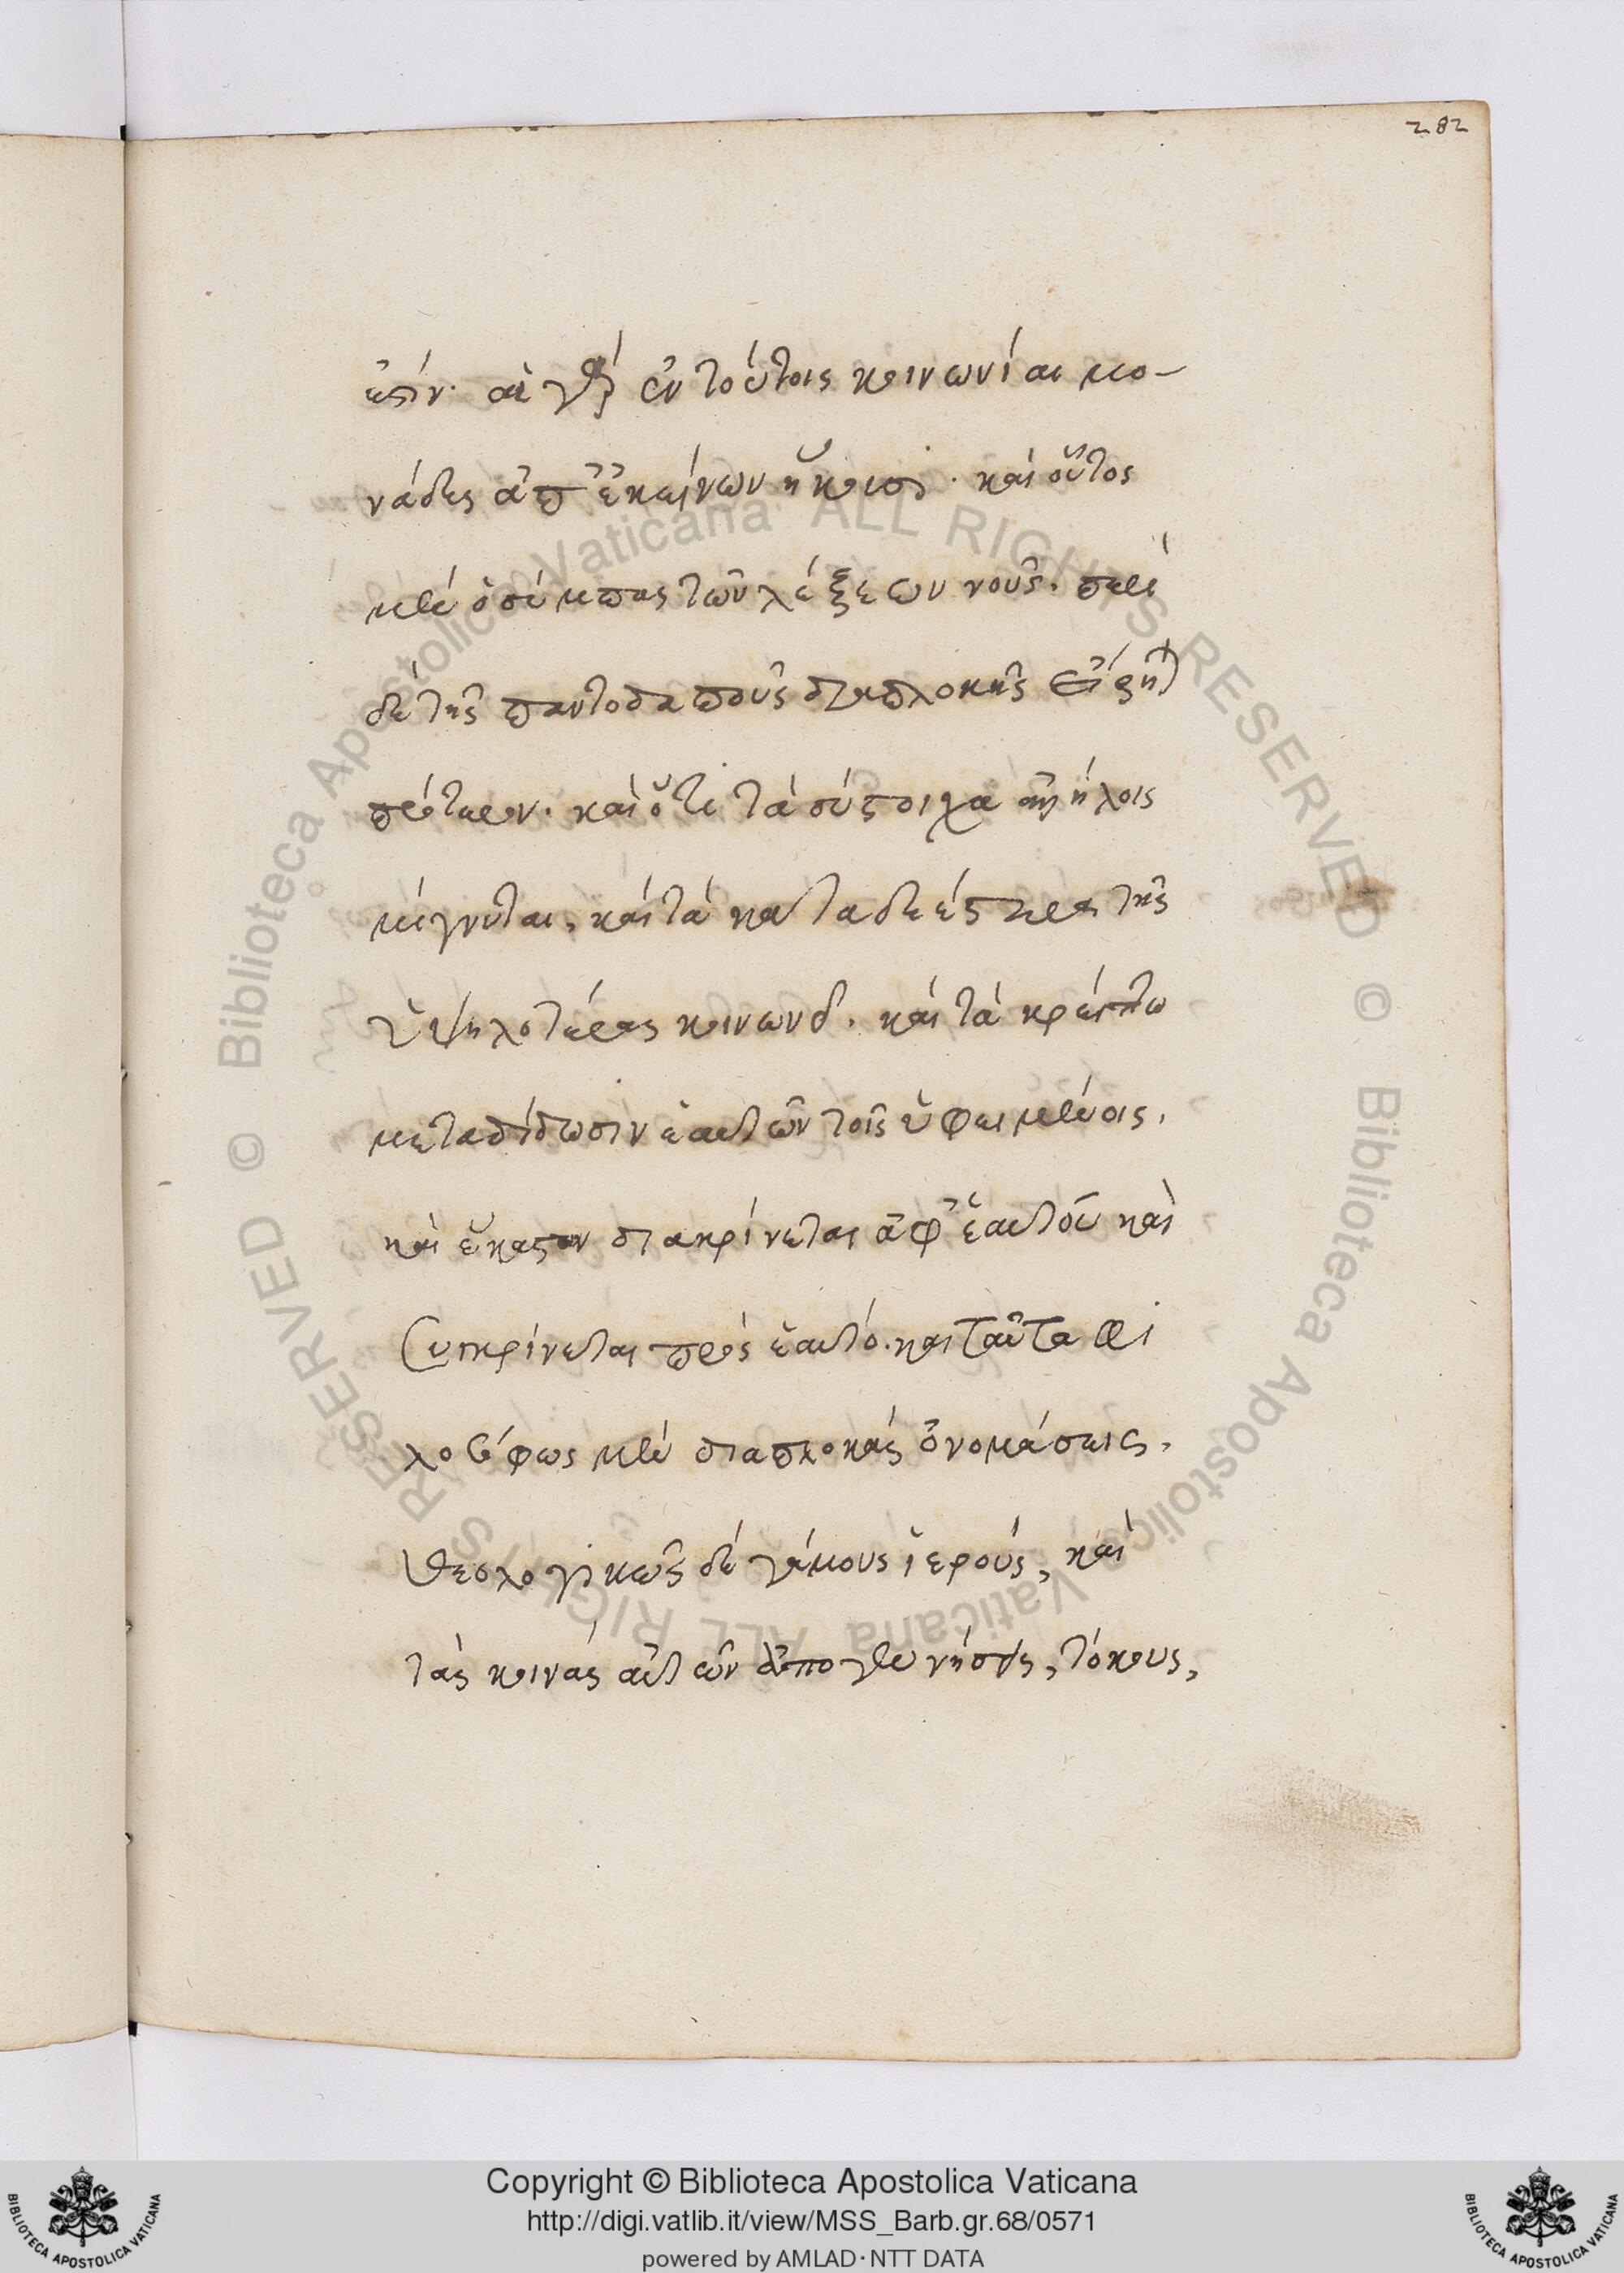 282
ἐστίν· αἱ γὰρ ἐν τούτοις κοινωνίαι μο-
νάδες ἀπ' ἐκείνων ἥκουσι· καὶ οὗτος
μὲν ὁ σύμπας τῶν λέξεων νοῦς. περὶ
δὲ τῆς παντοδαποῦς διαπλοκῆς εἴρηται
πρότερον. καὶ ὅτι τὰ σύστοιχα ἀλλήλοις
μίγνυται, καὶ τὰ καταδεέστερα τῆς
ὑψηλοτέρας κοινων. καὶ τὰ κρείττω
μεταδίδωσιν ἑαυτῶν τοῖς ὑφειμένοις.
καὶ ἕκαστον διακρίνεται ἀφ' ἑαυτοῦ καὶ
συγκρίνεται πρὸς ἑαυτό. καὶ ταῦτα φι
λοσόφως μὲν διαπλοκὰς ὀνομάσεις.
θεολογικῶς δὲ γάμους ἱερούς, καὶ
τὰς κοινὰς αὐτῶν ἀπογεννήσεις, τόκους,
Copyright © Biblioteca Apostolica Vaticana
http://digi.vatlib.it/view/MSS_Barb.gr.68/0571
powered by AMLAD · NTT DATA
BIBLIOTECA APOSTOLICA VATICANA
BIBLIOTECA APOSTOLICA VATICANA
© Biblioteca Apostolica Vaticana ALL RIGHTS RESERVED
© Biblioteca Apostolica Vaticana ALL RIGHTS RESERVED